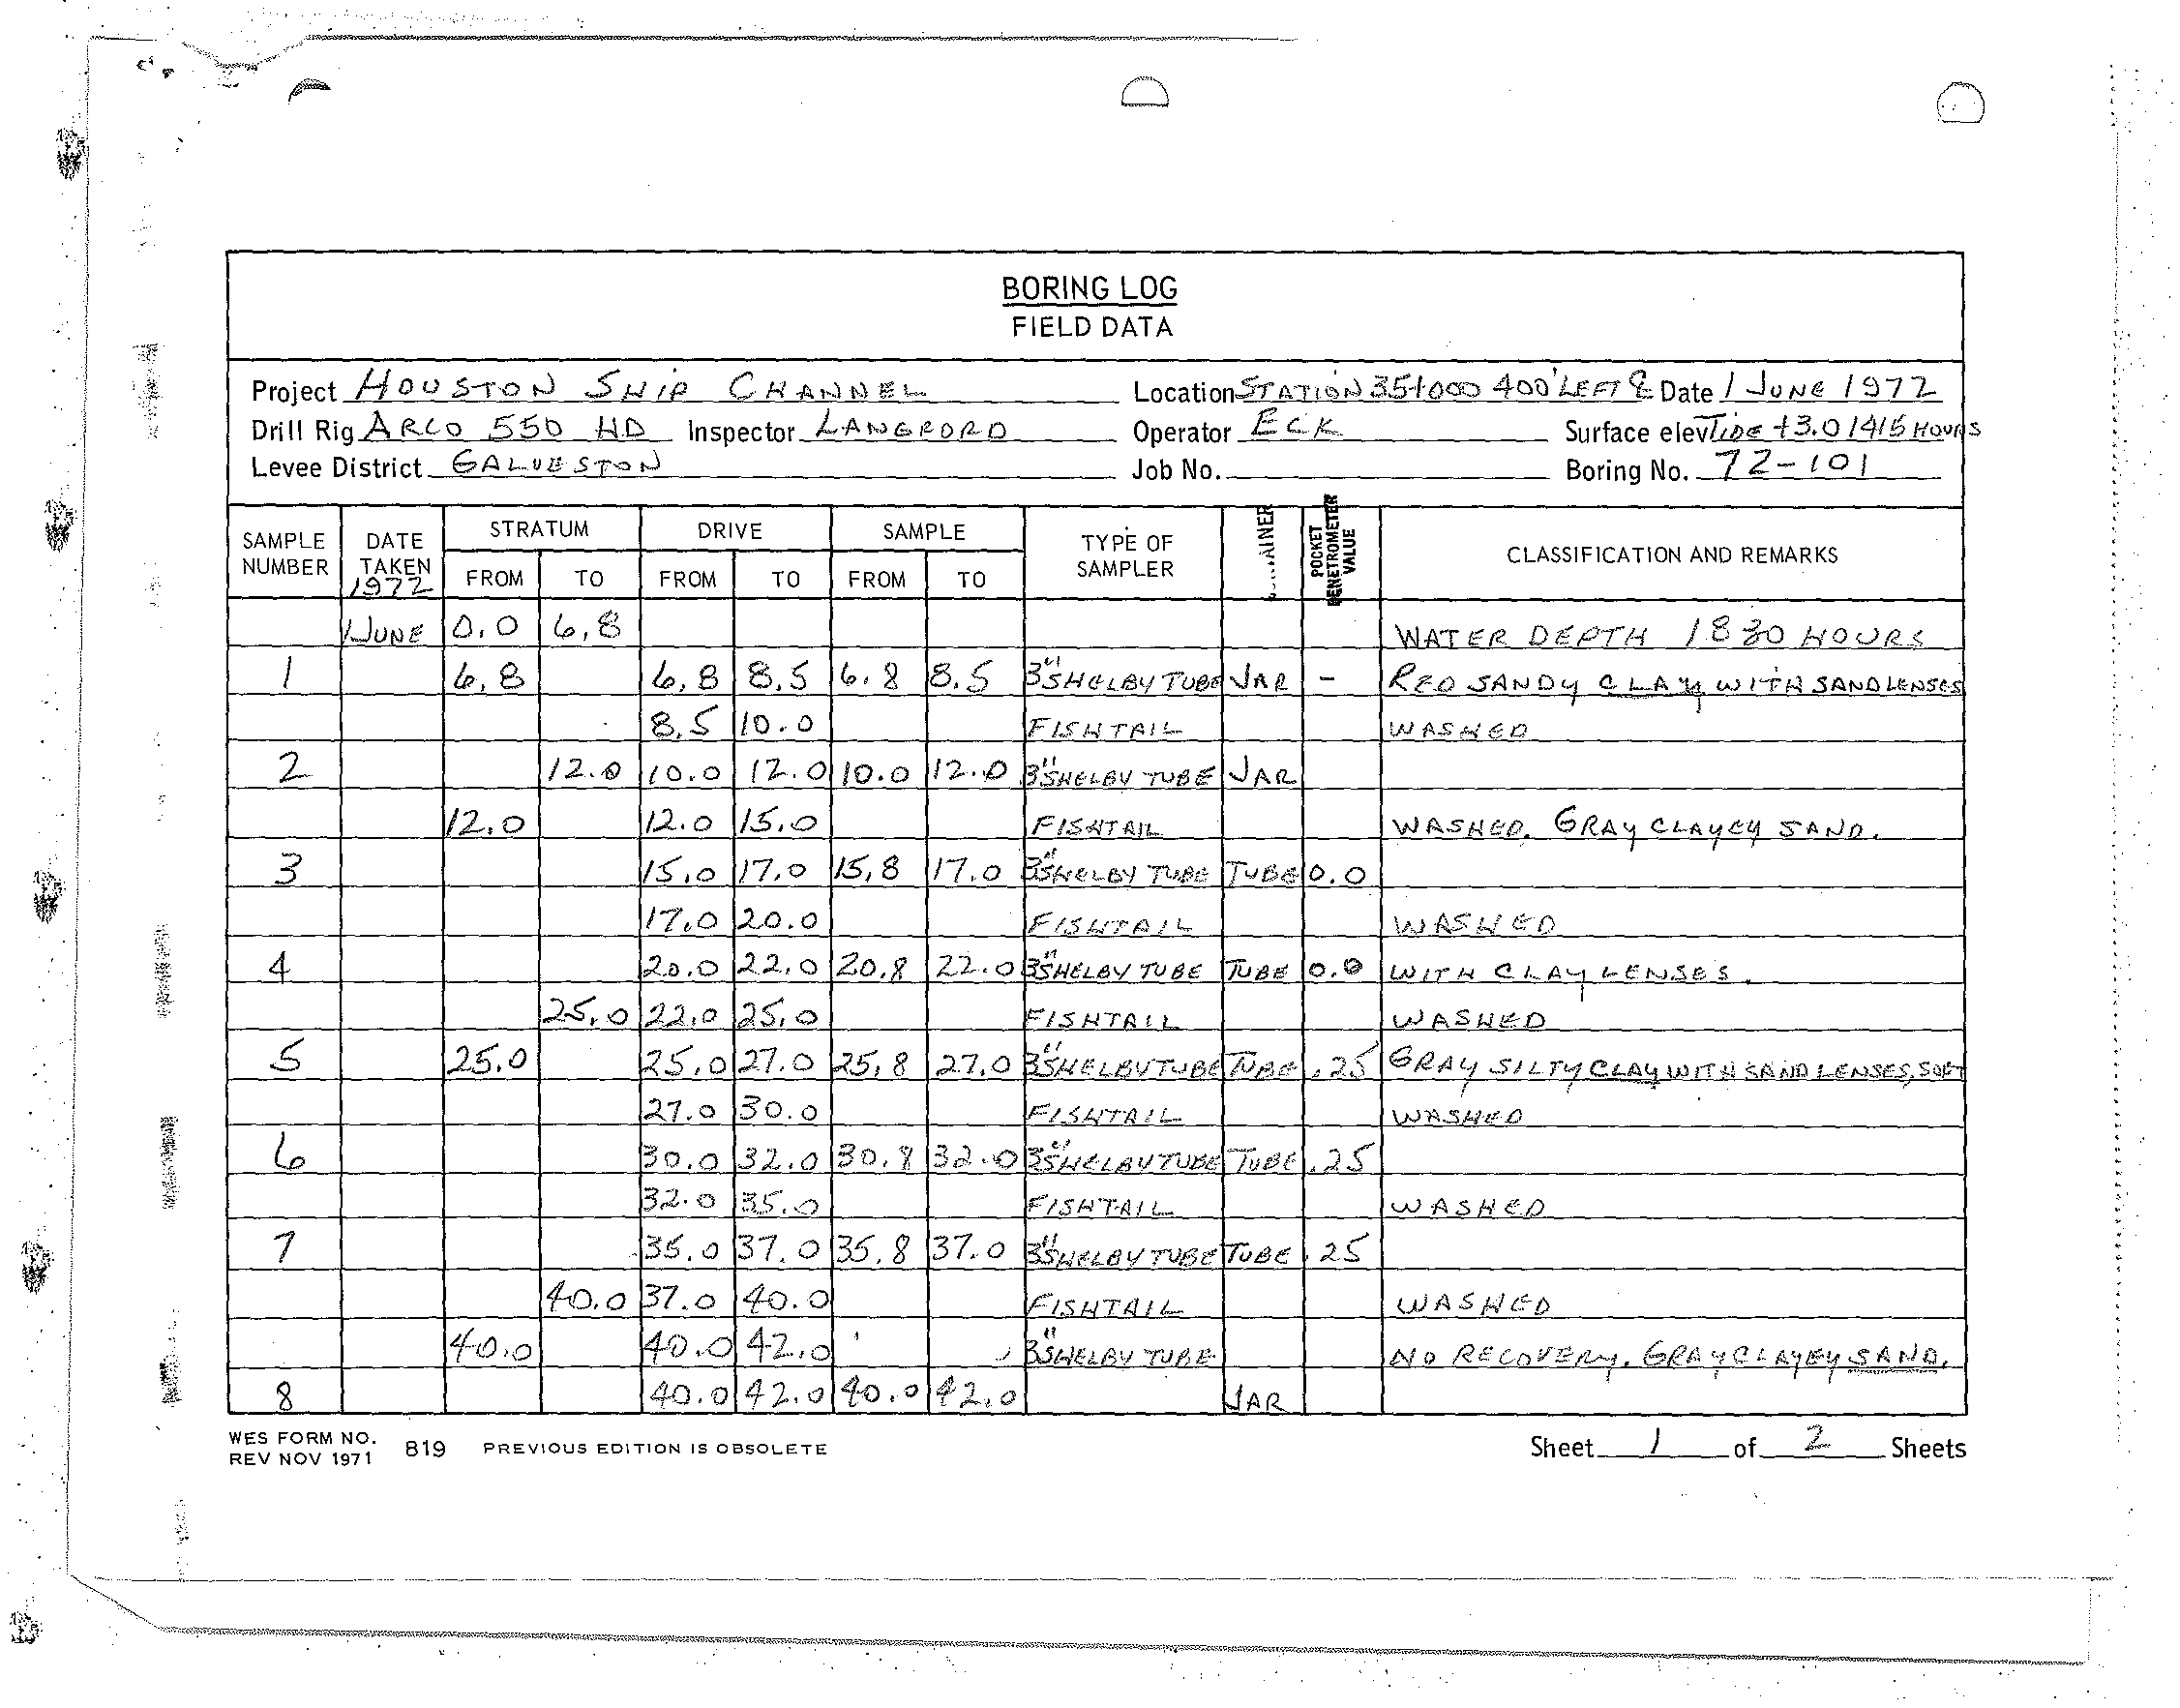 BORING LOG
FIELD DATA
Project HOUSTON SHIP CHANNEL Location STATION 35+000 400' LEFT ℄ Date 1 JUNE 1972
Drill Rig ARCO 550 HD Inspector LANGFORD Operator ECK Surface elev TIDE +3.0 1415 HOURS
Levee District GALVESTON Job No. Boring No. 72-101
SAMPLE NUMBER DATE TAKEN 1972 STRATUM FROM TO DRIVE FROM TO SAMPLE FROM TO TYPE OF SAMPLER POCKET PENETROMETER VALUE CLASSIFICATION AND REMARKS
1 JUNE 0.0 6.8 WATER DEPTH 1830 HOURS
1 6.8 6.8 8.5 6.8 8.5 3" SHELBY TUBE JAR - RED SANDY CLAY WITH SAND LENSES
8.5 10.0 FISHTAIL WASHED
2 12.0 10.0 12.0 10.0 12.0 3" SHELBY TUBE JAR
12.0 12.0 15.0 FISHTAIL WASHED. GRAY CLAYEY SAND.
3 15.0 17.0 15.8 17.0 3" SHELBY TUBE TUBE 0.0
17.0 20.0 FISHTAIL WASHED
4 20.0 22.0 20.8 22.0 3" SHELBY TUBE TUBE 0.0 WITH CLAY LENSES.
25.0 22.0 25.0 FISHTAIL WASHED
5 25.0 25.0 27.0 25.8 27.0 3" SHELBY TUBE TUBE .25 GRAY SILTY CLAY WITH SAND LENSES, SOFT
27.0 30.0 FISHTAIL WASHED
6 30.0 32.0 30.8 32.0 3" SHELBY TUBE TUBE .25
32.0 35.0 FISHTAIL WASHED
7 35.0 37.0 35.8 37.0 3" SHELBY TUBE TUBE .25
40.0 37.0 40.0 FISHTAIL WASHED
40.0 40.0 42.0 3" SHELBY TUBE NO RECOVERY. GRAY CLAYEY SAND.
8 40.0 42.0 40.0 42.0 JAR
WES FORM NO. 819 PREVIOUS EDITION IS OBSOLETE Sheet 1 of 2 Sheets
REV NOV 1971